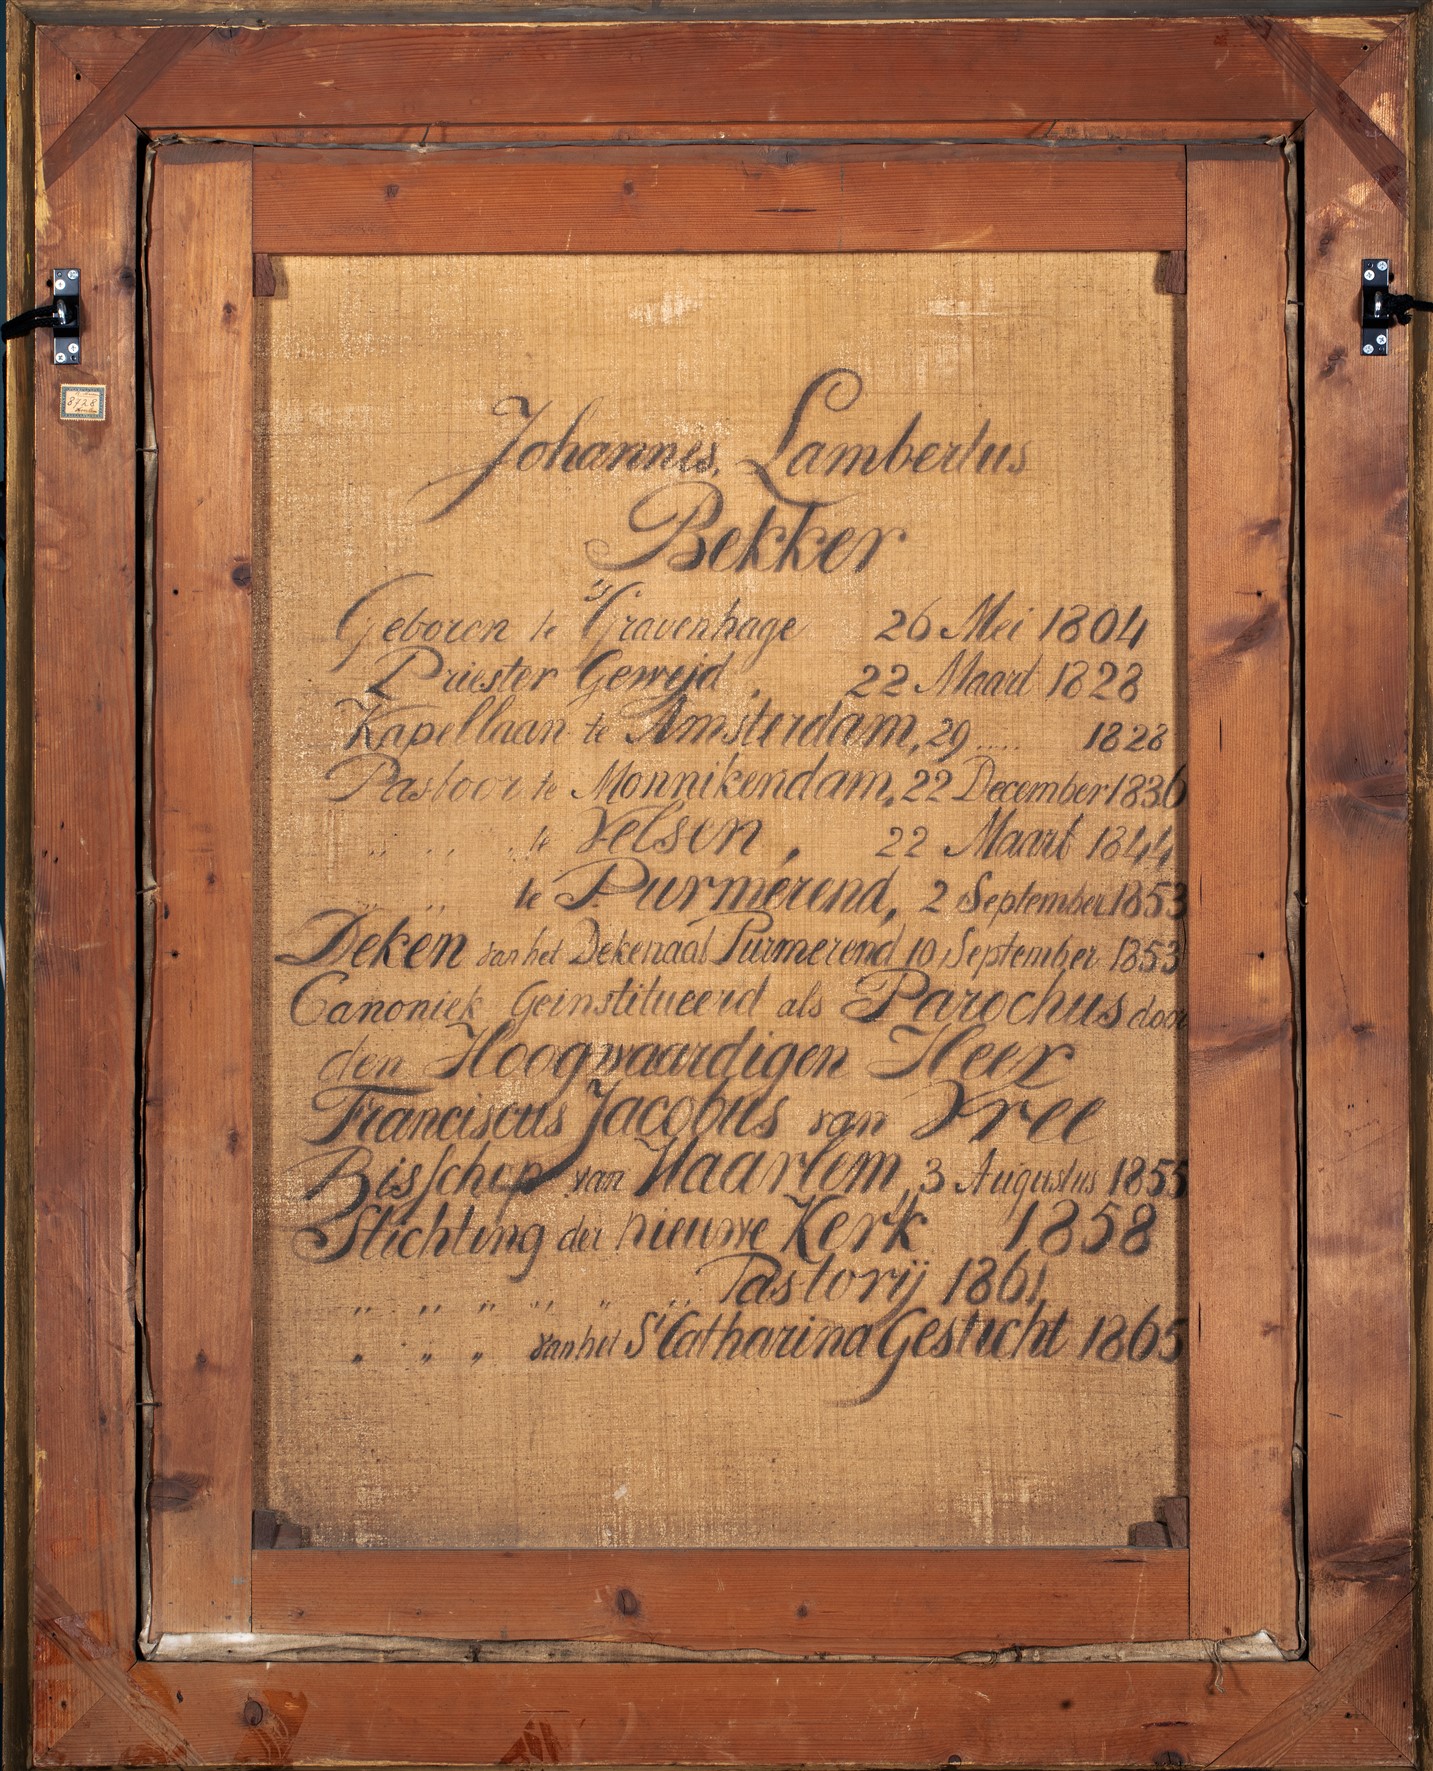 Johannes Lambertus
Bekker
Geboren te 's Gravenhage 26 Mei 1804
Priester Gewijd, 22 Maart 1828
Kapellaan te Amsterdam, 29 .... 1828
Pastoor te Monnikendam, 22 December 1836
" " " te Velsen, 22 Maart 1844
" " te Purmerend, 2 September 1853
Deken van het Dekenaat Purmerend 10 September 1853
Canoniek Geinstitueerd als Parochus door
den Hoogwaardigen Heer
Franciscus Jacobus van Vree
Bisschop van Haarlem, 3 Augustus 1855
Stichting der nieuwe Kerk 1858
" " " " " " Pastorij 1861,
" " " van het St Catharina Gesticht 1865
8728